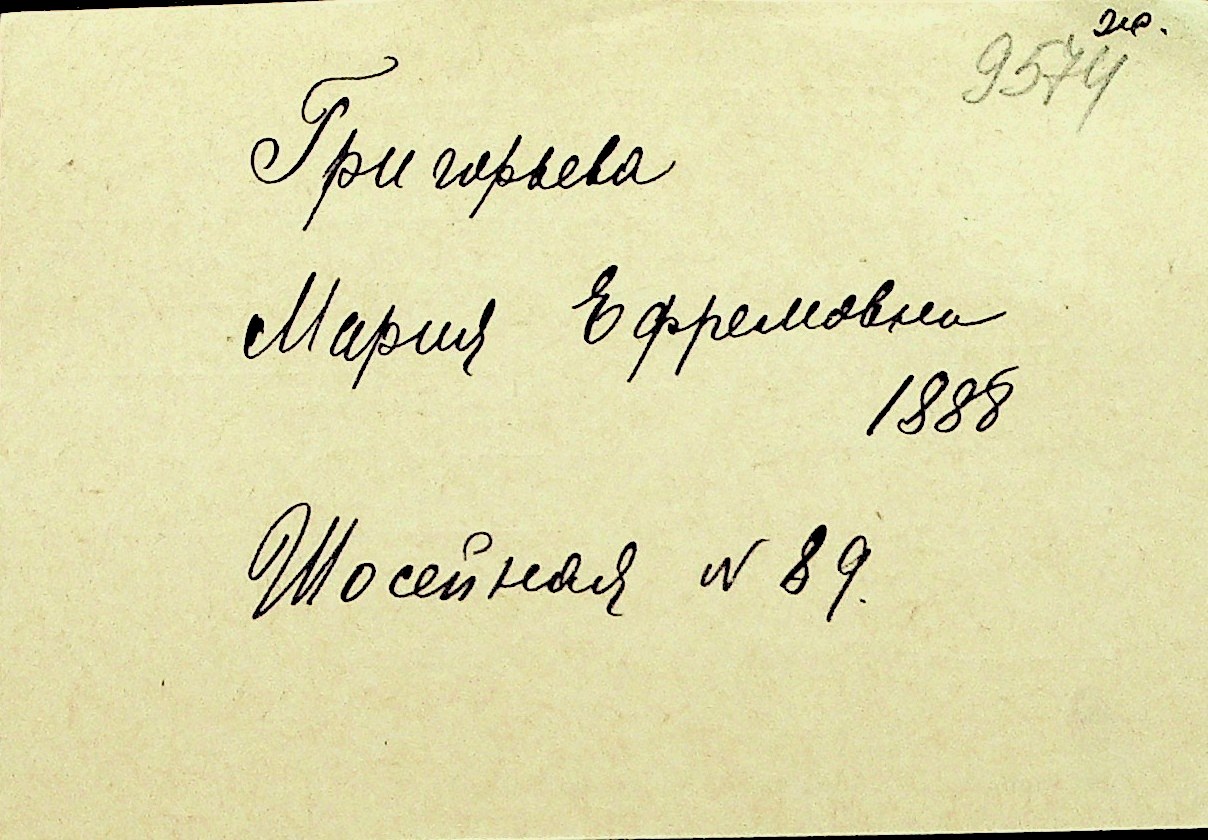 9574
Григорьева
Мария Ефремовна
1888
Шосейная N 89.